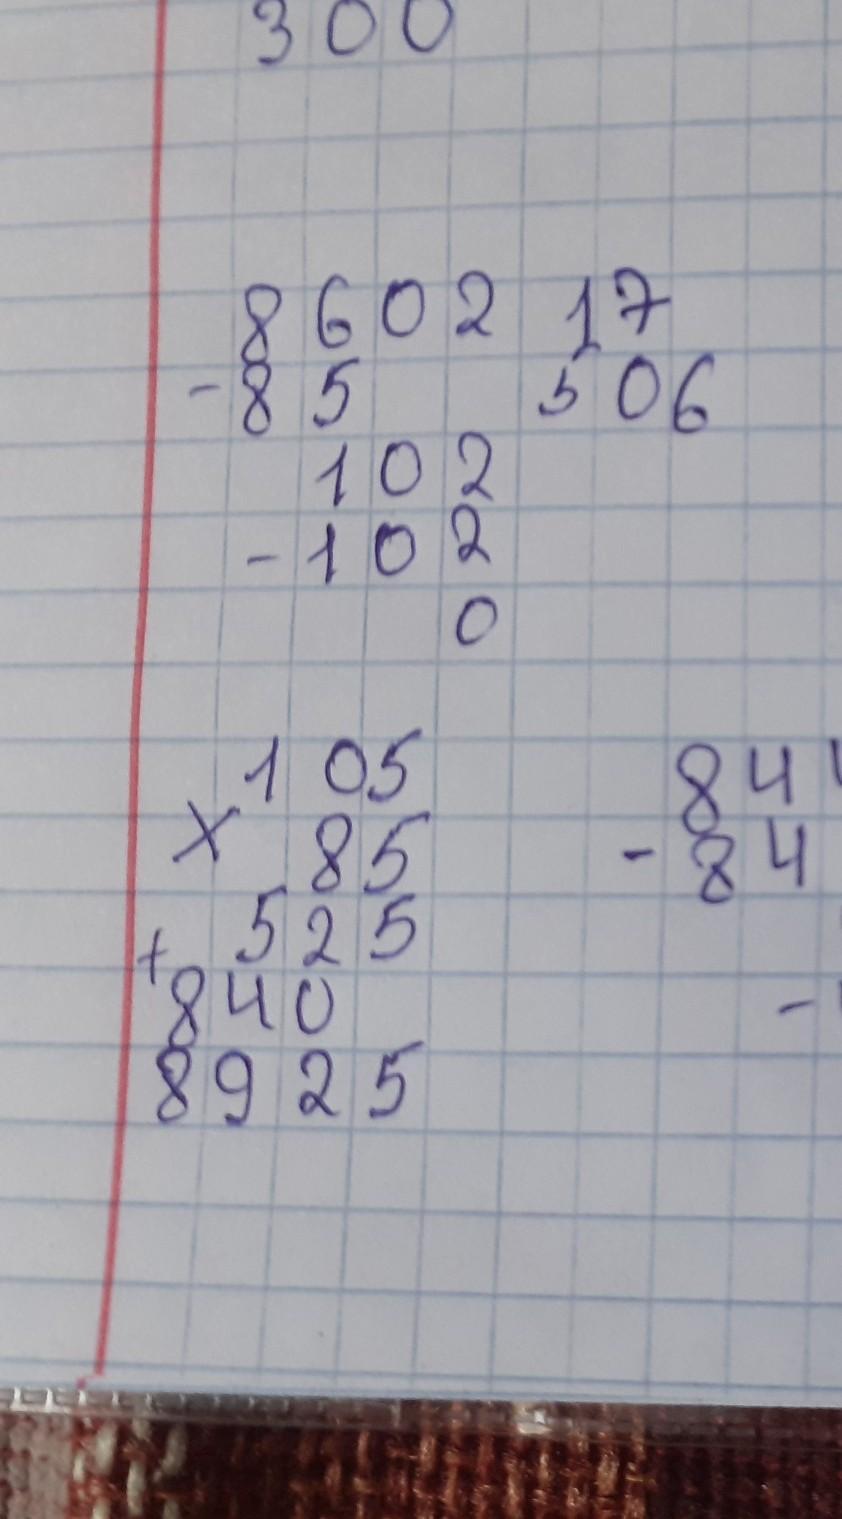 300
8602 17
- 85 506
102
- 102
0
105
x 85
525
+
840
8925
84
- 84
-